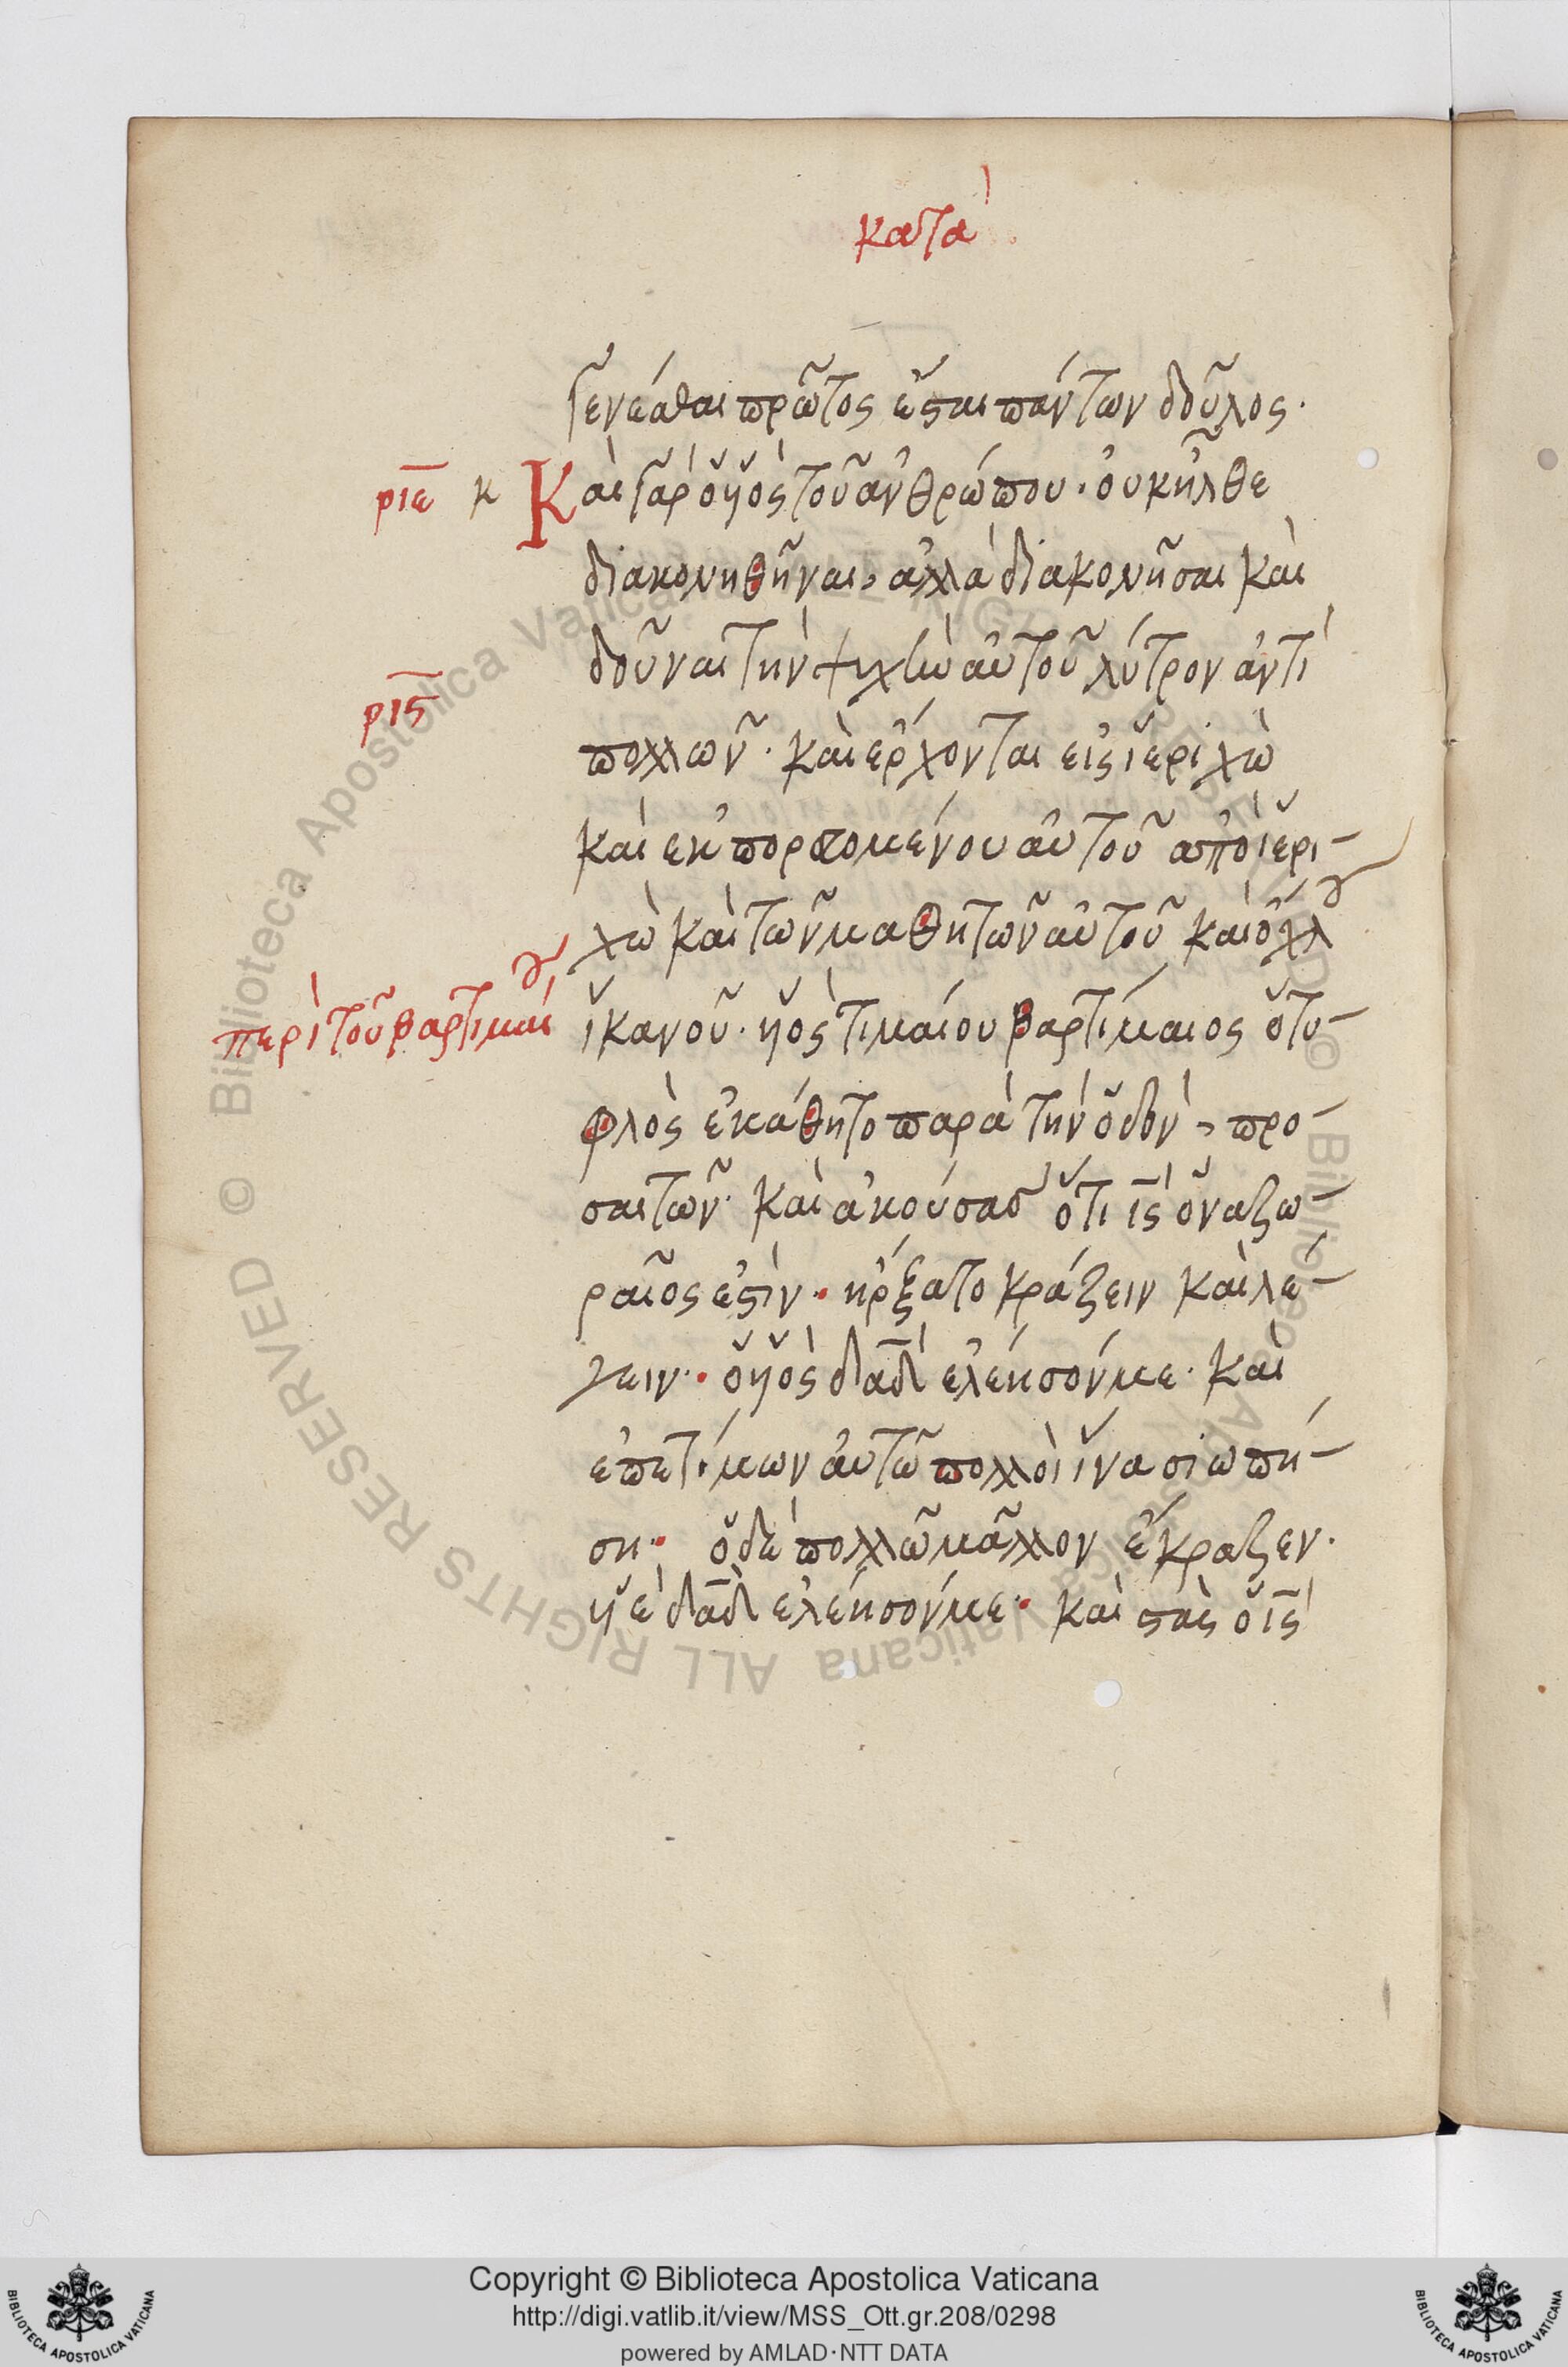 κατὰ
γενέσθαι πρῶτος ἔσται πάντων δοῦλος.
ριε κ Καὶ γὰρ ὁ ὑὸς τοῦ ἀνθρώπου. οὐκ ἦλθε
διακονηθῆναι, ἀλλὰ διακονῆσαι καὶ
δοῦναι τὴν ψυχὴν αὐτοῦ λύτρον ἀντὶ
ρις
πολλῶν. καὶ ἔρχονται εἰς ἱεριχὼ
καὶ ἐκπορευομένου αὐτοῦ ἀπὸ ἱερι-
χὼ καὶ τῶν μαθητῶν αὐτοῦ καὶ ὄχλου
περὶ τοῦ βαρτιμαίου
ἱκανοῦ. ὑὸς τιμαίου βαρτίμαιος ὁ τυ-
φλὸς ἐκάθητο παρὰ τὴν ὁδὸν, προ-
σαιτῶν. καὶ ἀκούσας ὅτι ις ὁ ναζω-
ραῖος ἐστὶν. ἤρξατο κράζειν καὶ λέ-
γειν. ὁ ὑὸς δαδ ἐλέησόν με. καὶ
ἐπετίμων αὐτῶ πολλοὶ ἵνα σιωπή-
ση. ὁ δὲ πολλῶ μᾶλλον ἔκραζεν.
ὑὲ δαδ ἐλέησόν με. καὶ στὰς ὁ ις
Copyright © Biblioteca Apostolica Vaticana
http://digi.vatlib.it/view/MSS_Ott.gr.208/0298
powered by AMLAD·NTT DATA
BIBLIOTECA APOSTOLICA VATICANA
BIBLIOTECA APOSTOLICA VATICANA